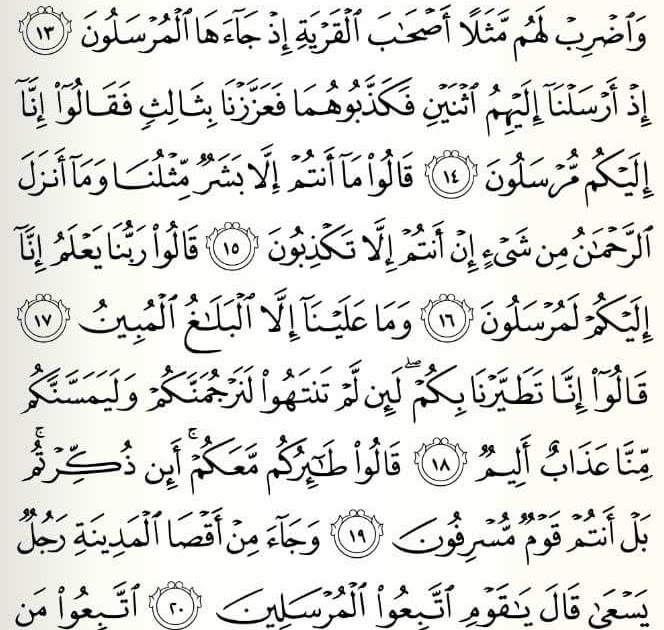 وَٱضۡرِبۡ لَهُم مَّثَلًا أَصۡحَٰبَ ٱلۡقَرۡيَةِ إِذۡ جَآءَهَا ٱلۡمُرۡسَلُونَ ١٣
إِذۡ أَرۡسَلۡنَآ إِلَيۡهِمُ ٱثۡنَيۡنِ فَكَذَّبُوهُمَا فَعَزَّزۡنَا بِثَالِثٖ فَقَالُوٓاْ إِنَّآ
إِلَيۡكُم مُّرۡسَلُونَ ١٤ قَالُواْ مَآ أَنتُمۡ إِلَّا بَشَرٞ مِّثۡلُنَا وَمَآ أَنزَلَ
ٱلرَّحۡمَٰنُ مِن شَيۡءٍ إِنۡ أَنتُمۡ إِلَّا تَكۡذِبُونَ ١٥ قَالُواْ رَبُّنَا يَعۡلَمُ إِنَّآ
إِلَيۡكُمۡ لَمُرۡسَلُونَ ١٦ وَمَا عَلَيۡنَآ إِلَّا ٱلۡبَلَٰغُ ٱلۡمُبِينُ ١٧
قَالُوٓاْ إِنَّا تَطَيَّرۡنَا بِكُمۡۖ لَئِن لَّمۡ تَنتَهُواْ لَنَرۡجُمَنَّكُمۡ وَلَيَمَسَّنَّكُم
مِّنَّا عَذَابٌ أَلِيمٞ ١٨ قَالُواْ طَٰٓئِرُكُم مَّعَكُمۡ أَئِن ذُكِّرۡتُمۚ
بَلۡ أَنتُمۡ قَوۡمٞ مُّسۡرِفُونَ ١٩ وَجَآءَ مِنۡ أَقۡصَا ٱلۡمَدِينَةِ رَجُلٞ
يَسۡعَىٰ قَالَ يَٰقَوۡمِ ٱتَّبِعُواْ ٱلۡمُرۡسَلِينَ ٢٠ ٱتَّبِعُواْ مَن